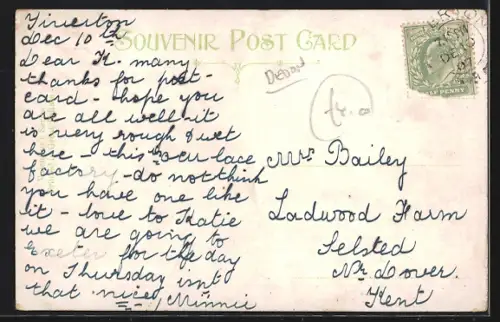 Tiverton
Dec 10th
SOUVENIR POST CARD
Dear K. many
thanks for post-
card - hope you
are all well - it
is very rough & wet
here - this is our lace
factory - do not think
you have one like
it - love to Katie
we are going to
Exeter for the day
on Thursday isnt
that nice, Minnie
Devon
Mrs Bailey
Ladwood Farm
Selsted
Nr. Dover.
Kent
PENNY
DE